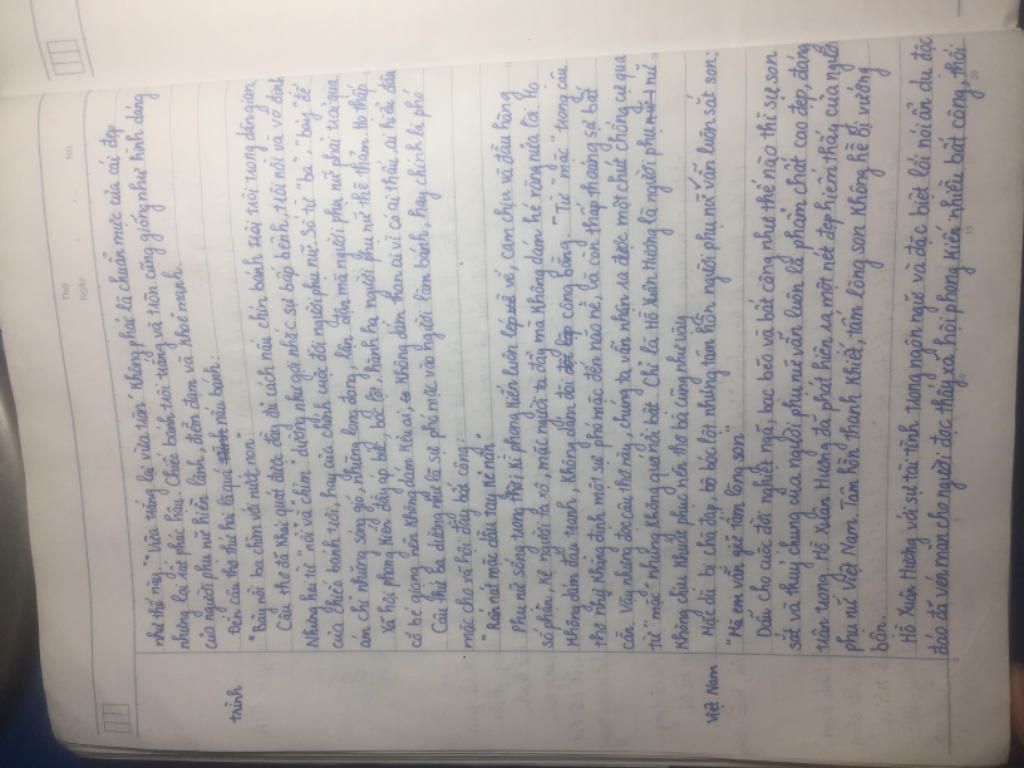 Thứ
Ngày
No.
như thế này, "vừa trắng lại vừa tròn" không phải là chuẩn mực của cái đẹp
nhưng lại rất phúc hậu. Chiếc bánh trôi trắng và tròn cũng giống như hình dáng
của người phụ nữ hiền lành, điềm đạm và khoẻ mạnh.
Đến câu thứ hai là nước nấu bánh:
trình
"Bảy nổi ba chìm với nước non"
Câu thơ đã khái quát được đầy đủ cách nấu chín bánh trôi trôi trong dân gian.
Nhưng hai từ "nổi và chìm" dường như gợi nhắc sự bấp bênh, trôi nổi và vô định
của chiếc bánh trôi, hay của chính cuộc đời người phụ nữ. Số từ "ba" "bảy" để
ám chỉ những sóng gió, những long đong, lận đận mà người phụ nữ phải trải qua.
Xã hội phong kiến đầy áp bức, bóc lột, hành hạ người phụ nữ thê thảm. Họ thấp
cổ bé giọng nên không dám kêu ai, không dám than ai vì có ai thấu, ai hiểu đâu
Câu thứ ba dường như là sự phó mặc vào người làm bánh, hay chính là phó
mặc cho xã hội đầy bất công:
"Rắn nát mặc dầu tay kẻ nặn"
Phụ nữ sống trong thời kì phong kiến luôn lép vế, cam chịu và đầu hàng
số phận, kệ người ta xô, mặc người ta đẩy mà không dám hé răng nửa lời. Họ
không dám đấu tranh, không dám đòi công bằng. Từ "mặc" trong câu
thơ như khẳng định một sự phó mặc đến não nề, và còn thấp thoáng sự bất
cần. Vậy nhưng đọc câu thơ này, chúng ta vẫn nhận ra được một chút chống cự qua
từ "mặc" nhưng không quá nổi bật. Chỉ là Hồ Xuân Hương là người phụ nữ
không chịu khuất phục nên thơ bà cũng như vậy.
Việt Nam
Mặc dù bị chà đạp, bị bóc lột nhưng tâm hồn người phụ nữ vẫn luôn sắt son:
"Mà em vẫn giữ tấm lòng son"
Dẫu cho cuộc đời nghiệt ngã, bạc bẽo và bất công như thế nào thì sự son
sắt và thuỷ chung của người phụ nữ vẫn luôn là phẩm chất cao đẹp, đáng
trân trọng. Hồ Xuân Hương đã phát hiện ra một nét đẹp hiếm thấy của người
phụ nữ Việt Nam. Tâm hồn thanh khiết, tấm lòng son không hề bị vướng
bẩn.
Hồ Xuân Hương với sự tài tình trong ngôn ngữ và đặc biệt lối nói ẩn dụ độc
đáo đã vén màn cho người đọc thấy xã hội phong kiến nhiều bất công, thối